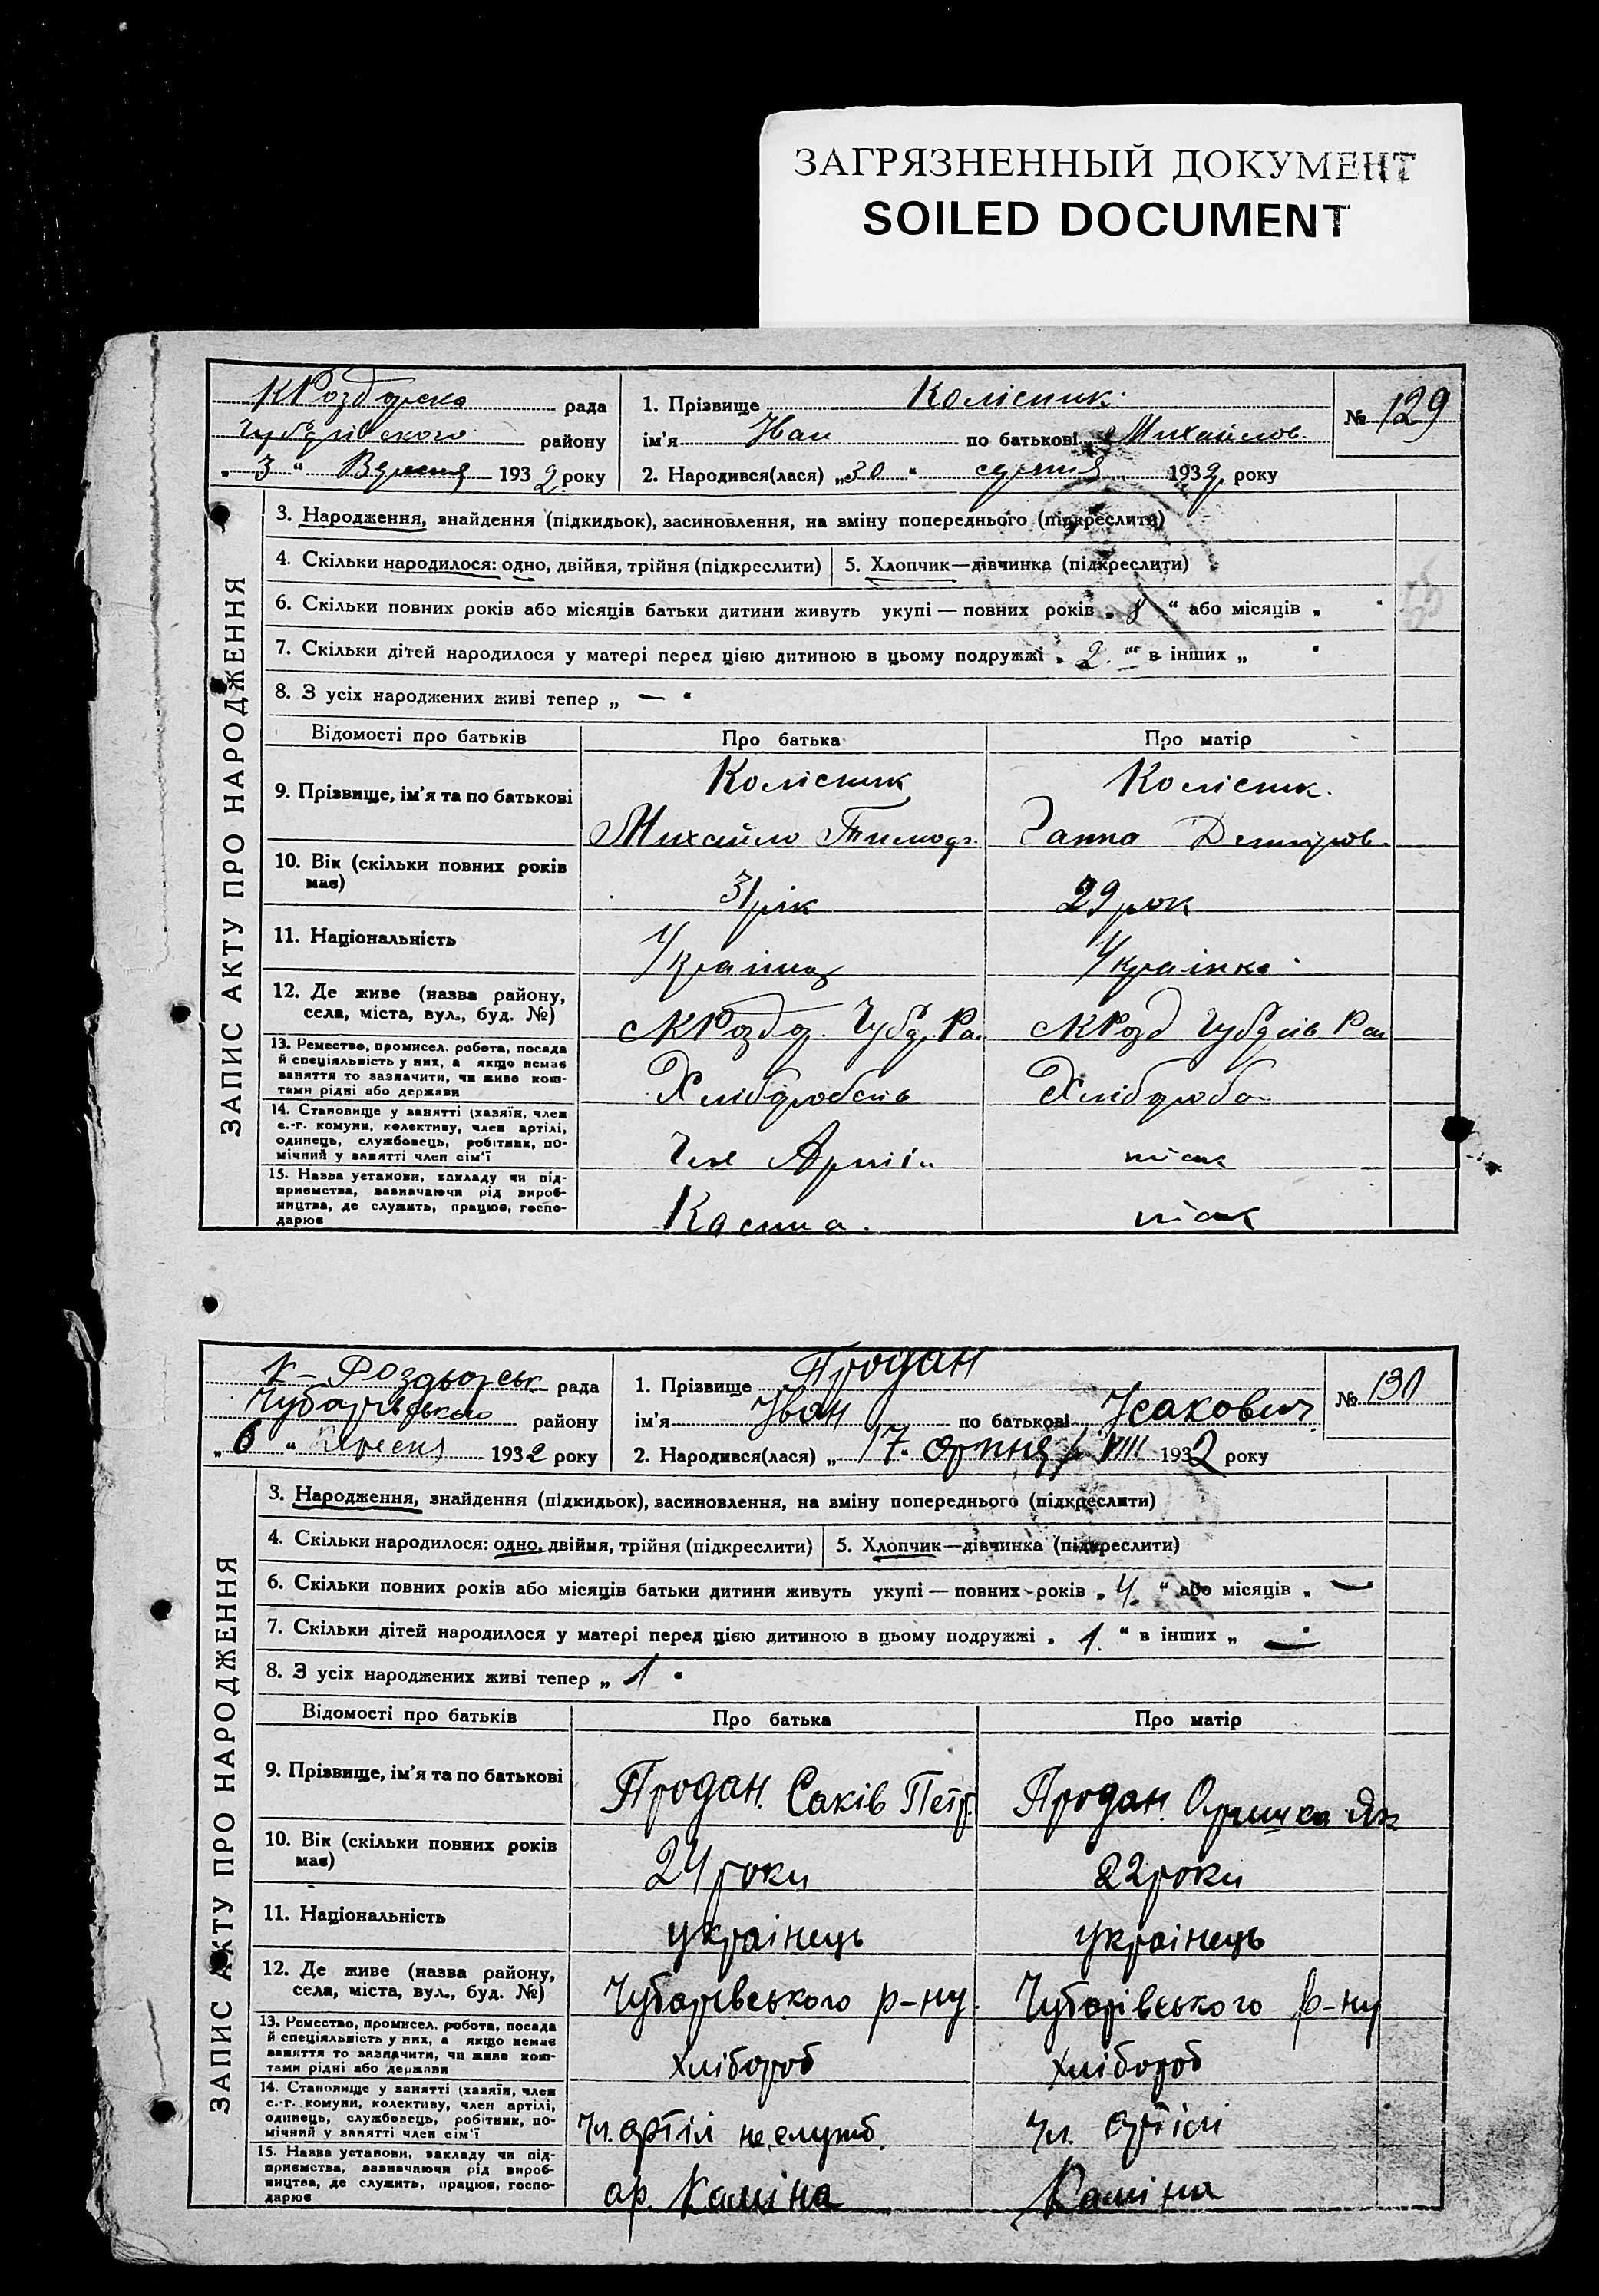 ЗАГРЯЗНЕННЫЙ ДОКУМЕНТ
SOILED DOCUMENT
рада
району
„ 3 “ Вересня 1932 року
1. Прізвище Колісник
ім'я Іван по батькові Михайлов.
2. Народився(лася) „30“ серпня 1932 року
№ 129
ЗАПИС АКТУ ПРО НАРОДЖЕННЯ
3. Народження, знайдення (підкидьок), засиновлення, на зміну попереднього (підкреслити)
4. Скільки народилося: одно, двійня, трійня (підкреслити) 5. Хлопчик—дівчинка (підкреслити)
6. Скільки повних років або місяців батьки дитини живуть укупі — повних років „ 8 “ або місяців „ “
7. Скільки дітей народилося у матері перед цією дитиною в цьому подружжі „ 2. “ в інших „ “
8. З усіх народжених живі тепер „ — “
Відомості про батьків Про батька Про матір
9. Прізвище, ім'я та по батькові Колісник Колісник.
Михайло Ганна
10. Вік (скільки повних років
має) 31 рік 29 рок
11. Національність Українец Українка
12. Де живе (назва району,
села, міста, вул., буд. №)
13. Ремество, промисел, робота, посада
й спеціяльність у них, а якщо немає
заняття то зазначити, чи живе кош-
тами рідні або держави
14. Становище у занятті (хазяїн, член
с.-г. комуни, колективу, член артілі,
одинець, службовець, робітник, по-
мічний у занятті член сім'ї
15. Назва установи, закладу чи під-
приємства, зазначаючи рід вироб-
ництва, де служить, працює, госпо-
дарює
К-Роздорськ рада
Чубарівського району
„ 6 “ Вересня 1932 року
1. Прізвище Продан
ім'я Іван по батькові Ісакович
2. Народився(лася) „ 17 “ VIII 1932 року
№ 130
ЗАПИС АКТУ ПРО НАРОДЖЕННЯ
3. Народження, знайдення (підкидьок), засиновлення, на зміну попереднього (підкреслити)
4. Скільки народилося: одно, двійня, трійня (підкреслити) 5. Хлопчик—дівчинка (підкреслити)
6. Скільки повних років або місяців батьки дитини живуть укупі — повних років „ 4. “ або місяців „ —
7. Скільки дітей народилося у матері перед цією дитиною в цьому подружжі „ 1. “ в інших „ — “
8. З усіх народжених живі тепер „ 1 “
Відомості про батьків Про батька Про матір
9. Прізвище, ім'я та по батькові Продан. Саків Петр. Продан. Оришка Як
10. Вік (скільки повних років
має) 24 роки 22 роки
11. Національність українець українець
12. Де живе (назва району,
села, міста, вул., буд. №) Чубарівського р-ну. Чубарівського р-ну
13. Ремество, промисел, робота, посада
й спеціяльність у них, а якщо немає
заняття то зазначити, чи живе кош-
тами рідні або держави хлібороб хлібороб
14. Становище у занятті (хазяїн, член
с.-г. комуни, колективу, член артілі,
одинець, службовець, робітник, по-
мічний у занятті член сім'ї Чл. артіл не служб. Чл. артілі
15. Назва установи, закладу чи під-
приємства, зазначаючи рід вироб-
ництва, де служить, працює, госпо-
дарює ар.